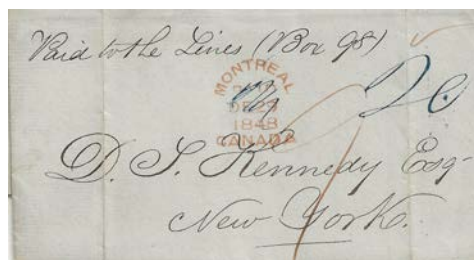 Paid to the Lines (Box 98)
MONTREAL
DE 28
1848
CANADA
D. S. Kennedy Esq
New York.